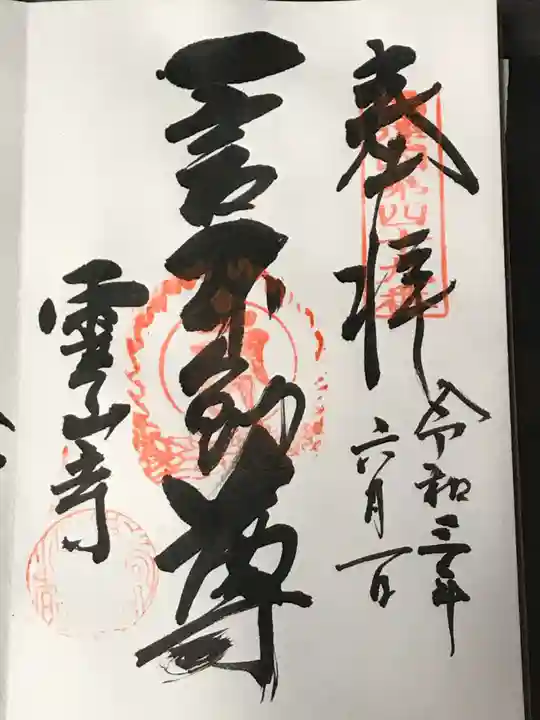 奉拝
令和三年
六月一日
一言不動尊
霊山寺